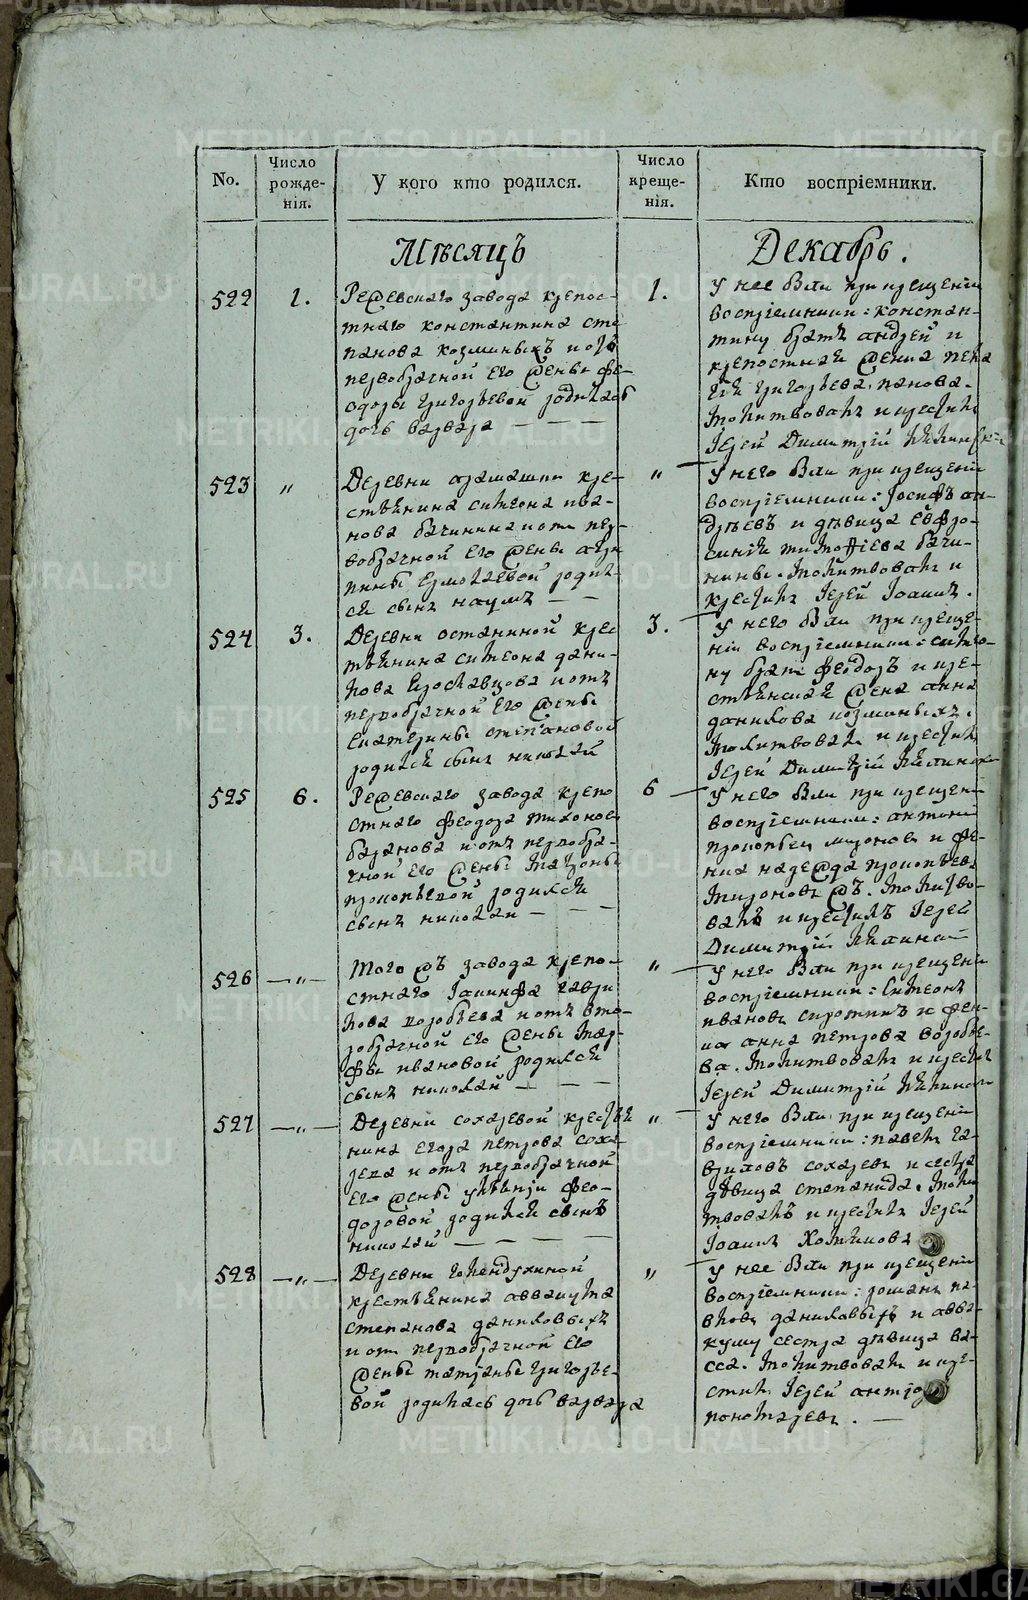 No.
Число рожде- нія.
У кого кто родился.
Число креще- нія.
Кто воспріемники.
Мѣсяцъ
Декабрь.
522
1.
Режевскаго завода крепос-
тнаго константина сте
панова козминыхъ и отъ
первобрачной его жены фе-
одоры григорьевой родилась
дочь варвара
1.
У нее были при крещеніи
воспріемники: констан-
тину братъ андрей и
крепостная жена
григорьева панова.
молитвовалъ и крестилъ
Іерей Димитрій
523
"
Деревни арамашки кре-
стьянина симеона ива-
нова бачинина и отъ пер-
вобрачной его жены агри
пины ермолаевой родил-
ся сынъ наумъ
"
У него были при крещеніи
воспріемники: Іосифъ ан-
дреевъ и дѣвица евфро-
синія тимофіева бачи-
нины. молитвовалъ и
крестилъ Іерей Іоаннъ.
524
3.
Деревни останиной крес
тьянина симеона дани-
лова Ярославцова и отъ
первобрачной его жены
Екатерины степановой
родился сынъ николай
3.
У него были при креще-
ніи воспріемники: симео-
ну братъ феодоръ и кре-
стьянская жена анна
данилова козминыхъ.
молитвовалъ и крестилъ
Іерей Димитрій
525
6.
Режевскаго завода крепо
стнаго феодора тихонова
баранова и отъ первобра-
чной его жены матроны
прокопьевой родился
сынъ николай
6
У него были при крещеніи
воспріемники: антоній
прокопьевъ мироновъ и де-
вица надежда прокопьева
мироновыхъ. молитво-
валъ и крестилъ Іерей
Димитрій
526
"
Того жъ завода крепо-
стнаго Іакинфа гаври
лова воробьева и отъ вто-
робрачной его жены мар-
фы ивановой родился
сынъ николай
"
У него были при крещеніи
воспріемники: Симеонъ
ивановъ сиротинъ и
анна петрова воробье-
ва. молитвовалъ и крестилъ
Іерей Димитрій
527
"
Деревни сохаревой крестья
нина егора петрова соха
рева и отъ первобрачной
его жены феo-
доровой родился сынъ
николай
"
У него были при крещеніи
воспріемники: павелъ га-
вриловъ сохаревъ и сестра
дѣвица степанида. моли
твовалъ и крестилъ Іерей
Іоаннъ
528
"
Деревни голендухиной
крестьянина аввакума
степанова даниловыхъ
и отъ первобрачной его
жены татьяны григорье-
вой родилась дочь варвара
"
У нее были при крещеніи
воспріемники: романъ па-
вловъ даниловыхъ и авва-
куму сестра дѣвица ва-
сса. молитвовалъ и кре-
стилъ Іерей
пономаревъ.
METRIKI.GASO-URAL.RU